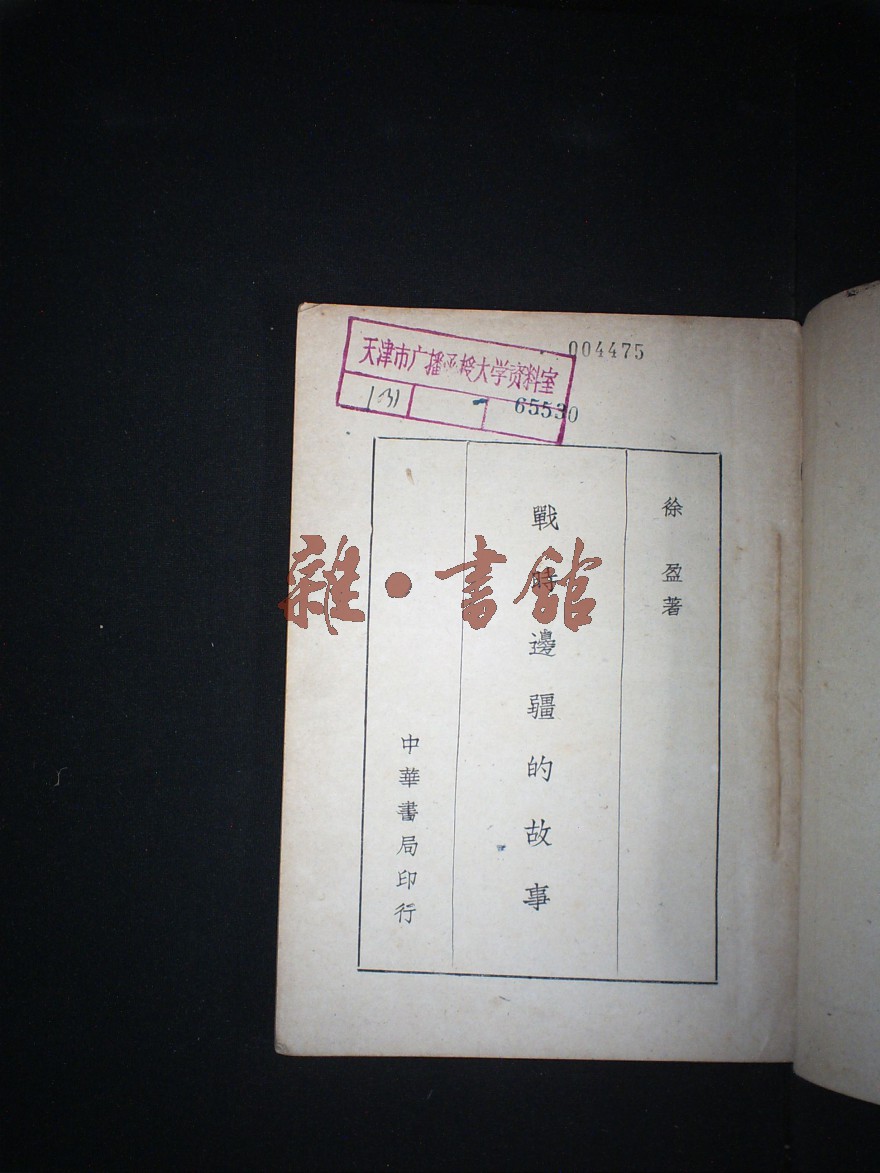 004475
天津市广播函授大学资料室
131
65530
徐盈著
戰時邊疆的故事
中華書局印行
雜·書館